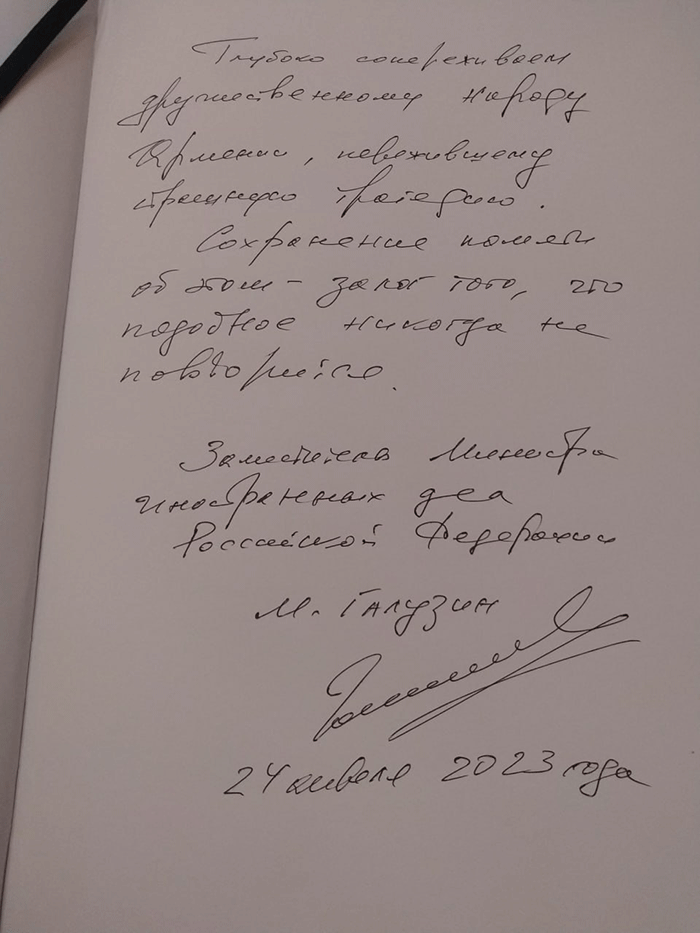 Глубоко сопереживаем
дружественному народу
Армении, пережившему
страшную трагедию.
Сохранение памяти
об этом - залог того, что
подобное никогда не
повторится.
Заместитель Министра
иностранных дел
Российской Федерации
М. Галузин
24 апреля 2023 года